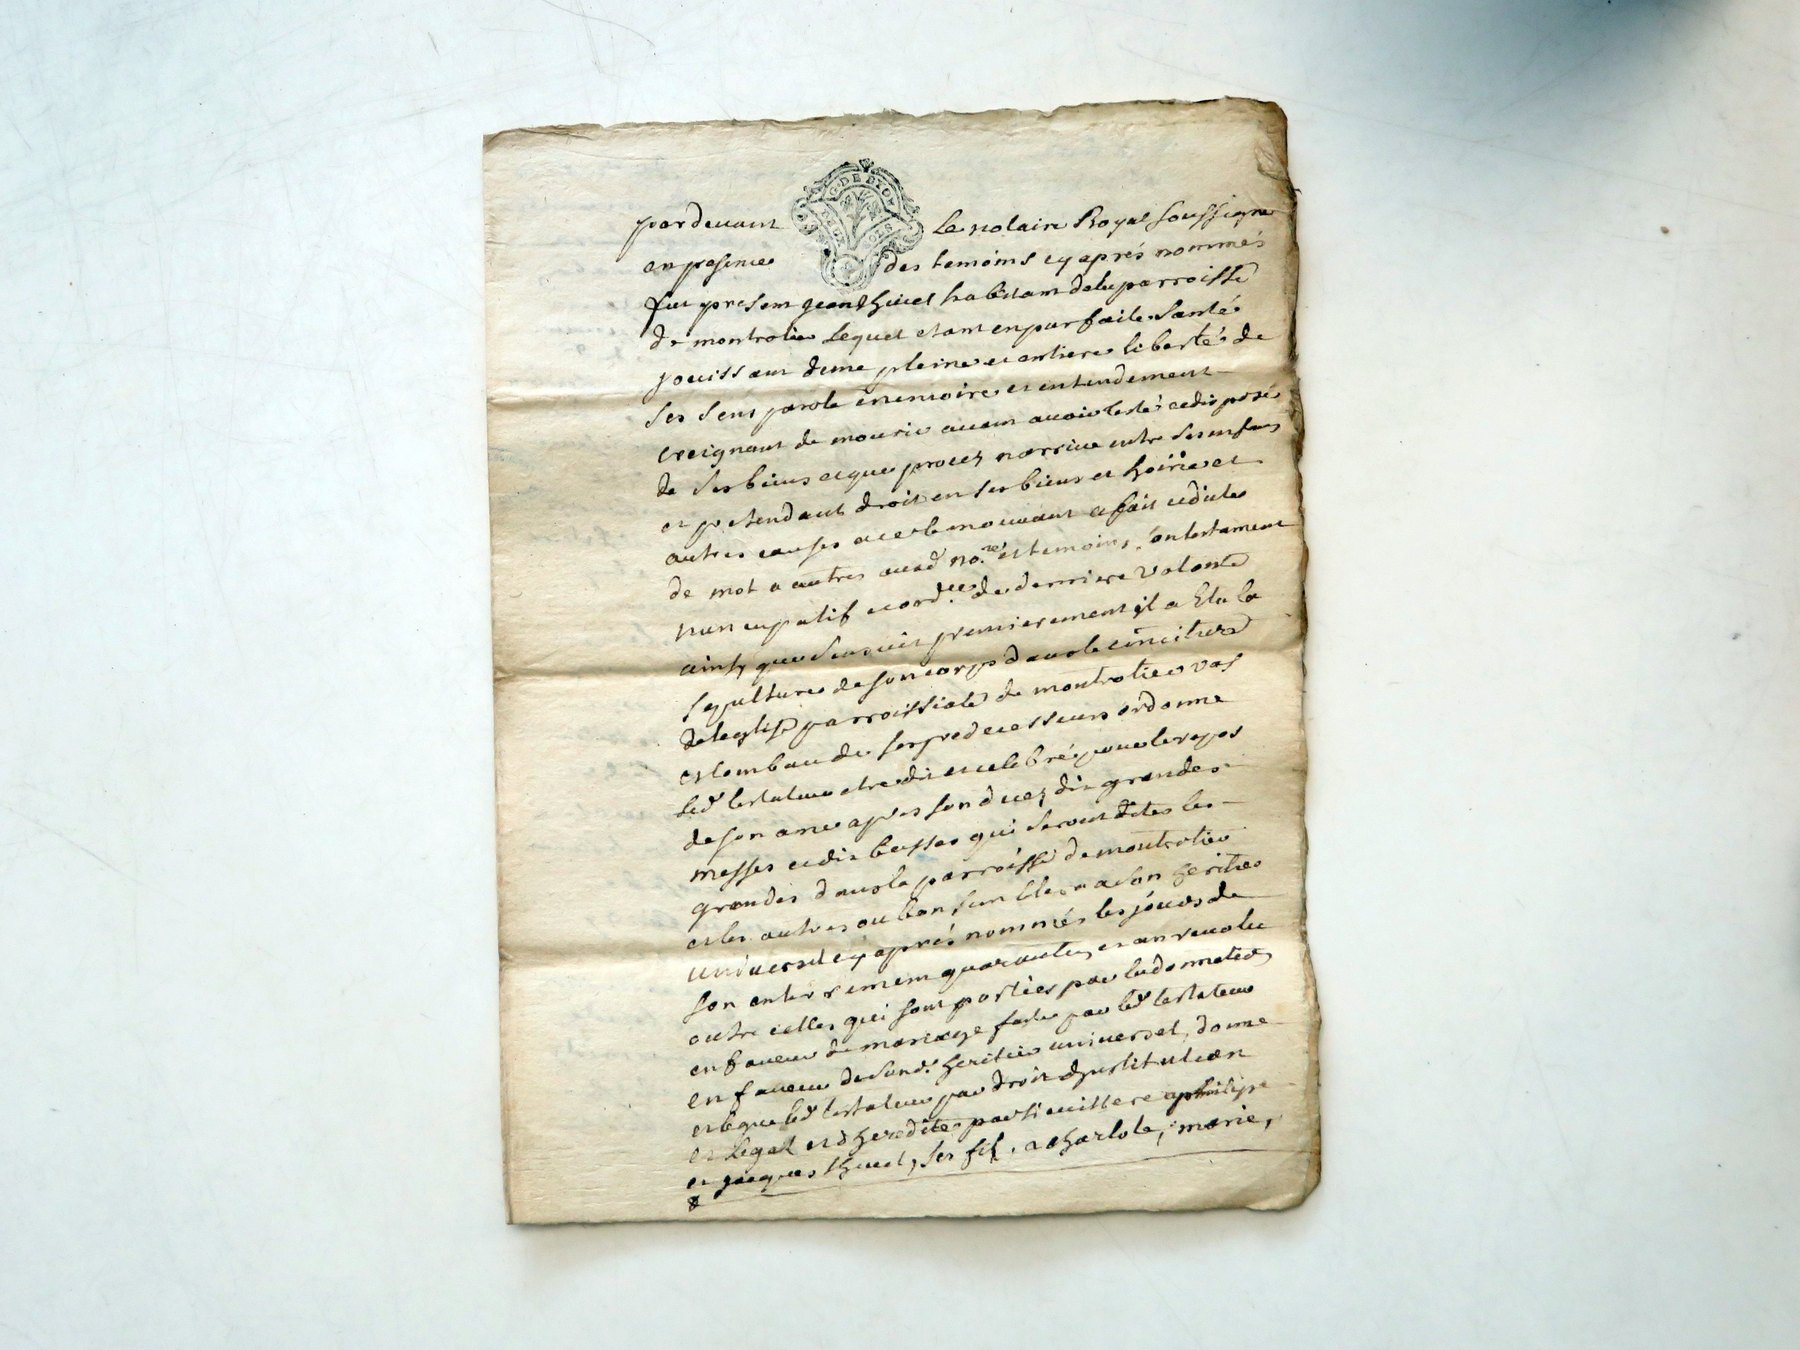 G. DE LYON
par devant Le notaire Royal soussigne
en presence des temoins cy aprés nommés
fut present jean thivel habitant dela parroisse
de montrotier Lequel etant en parfaite santé
jouissant dune pleine et entiere liberté de
ses sens parole memoire et entendement
creignant de mourir avant avoir testé et disposé
de ses biens et que procez narrive entre ses enfans
et pretendant droit en ses biens et hoirie et
autres causes a ce le mouvant a fait et dicté
de mot a autres aud no.re et temoins, son testament
nuncupatif et ord.ce de derniere volonté
ainsy que sensuit premierement il a Elu la
sepulture de son corps dans le cimitiere
de leglise parroissiale de montrotier vas
et tombeau de ses predecesseurs ordonne
led testateur etre dit et celebré pour le repos
de son ame apres son decez dix grandes
messes et dix basses qui seront dites les
grandes dans la parroisse de montrotier
et les autres ou bon semblera a son heritier
universel cy aprés nommés les jours de
son enterrement quarantain et an revolu
outre celles qui sont portées par la donnation
en faveur de mariage faite par led testateur
en faveur de sond. heritier universel, donne
et legue led testateur par droit dinstitution
et Legat et dheredité particuillere a philipe
et jacques thivel, ses fils, a charlote, marie,